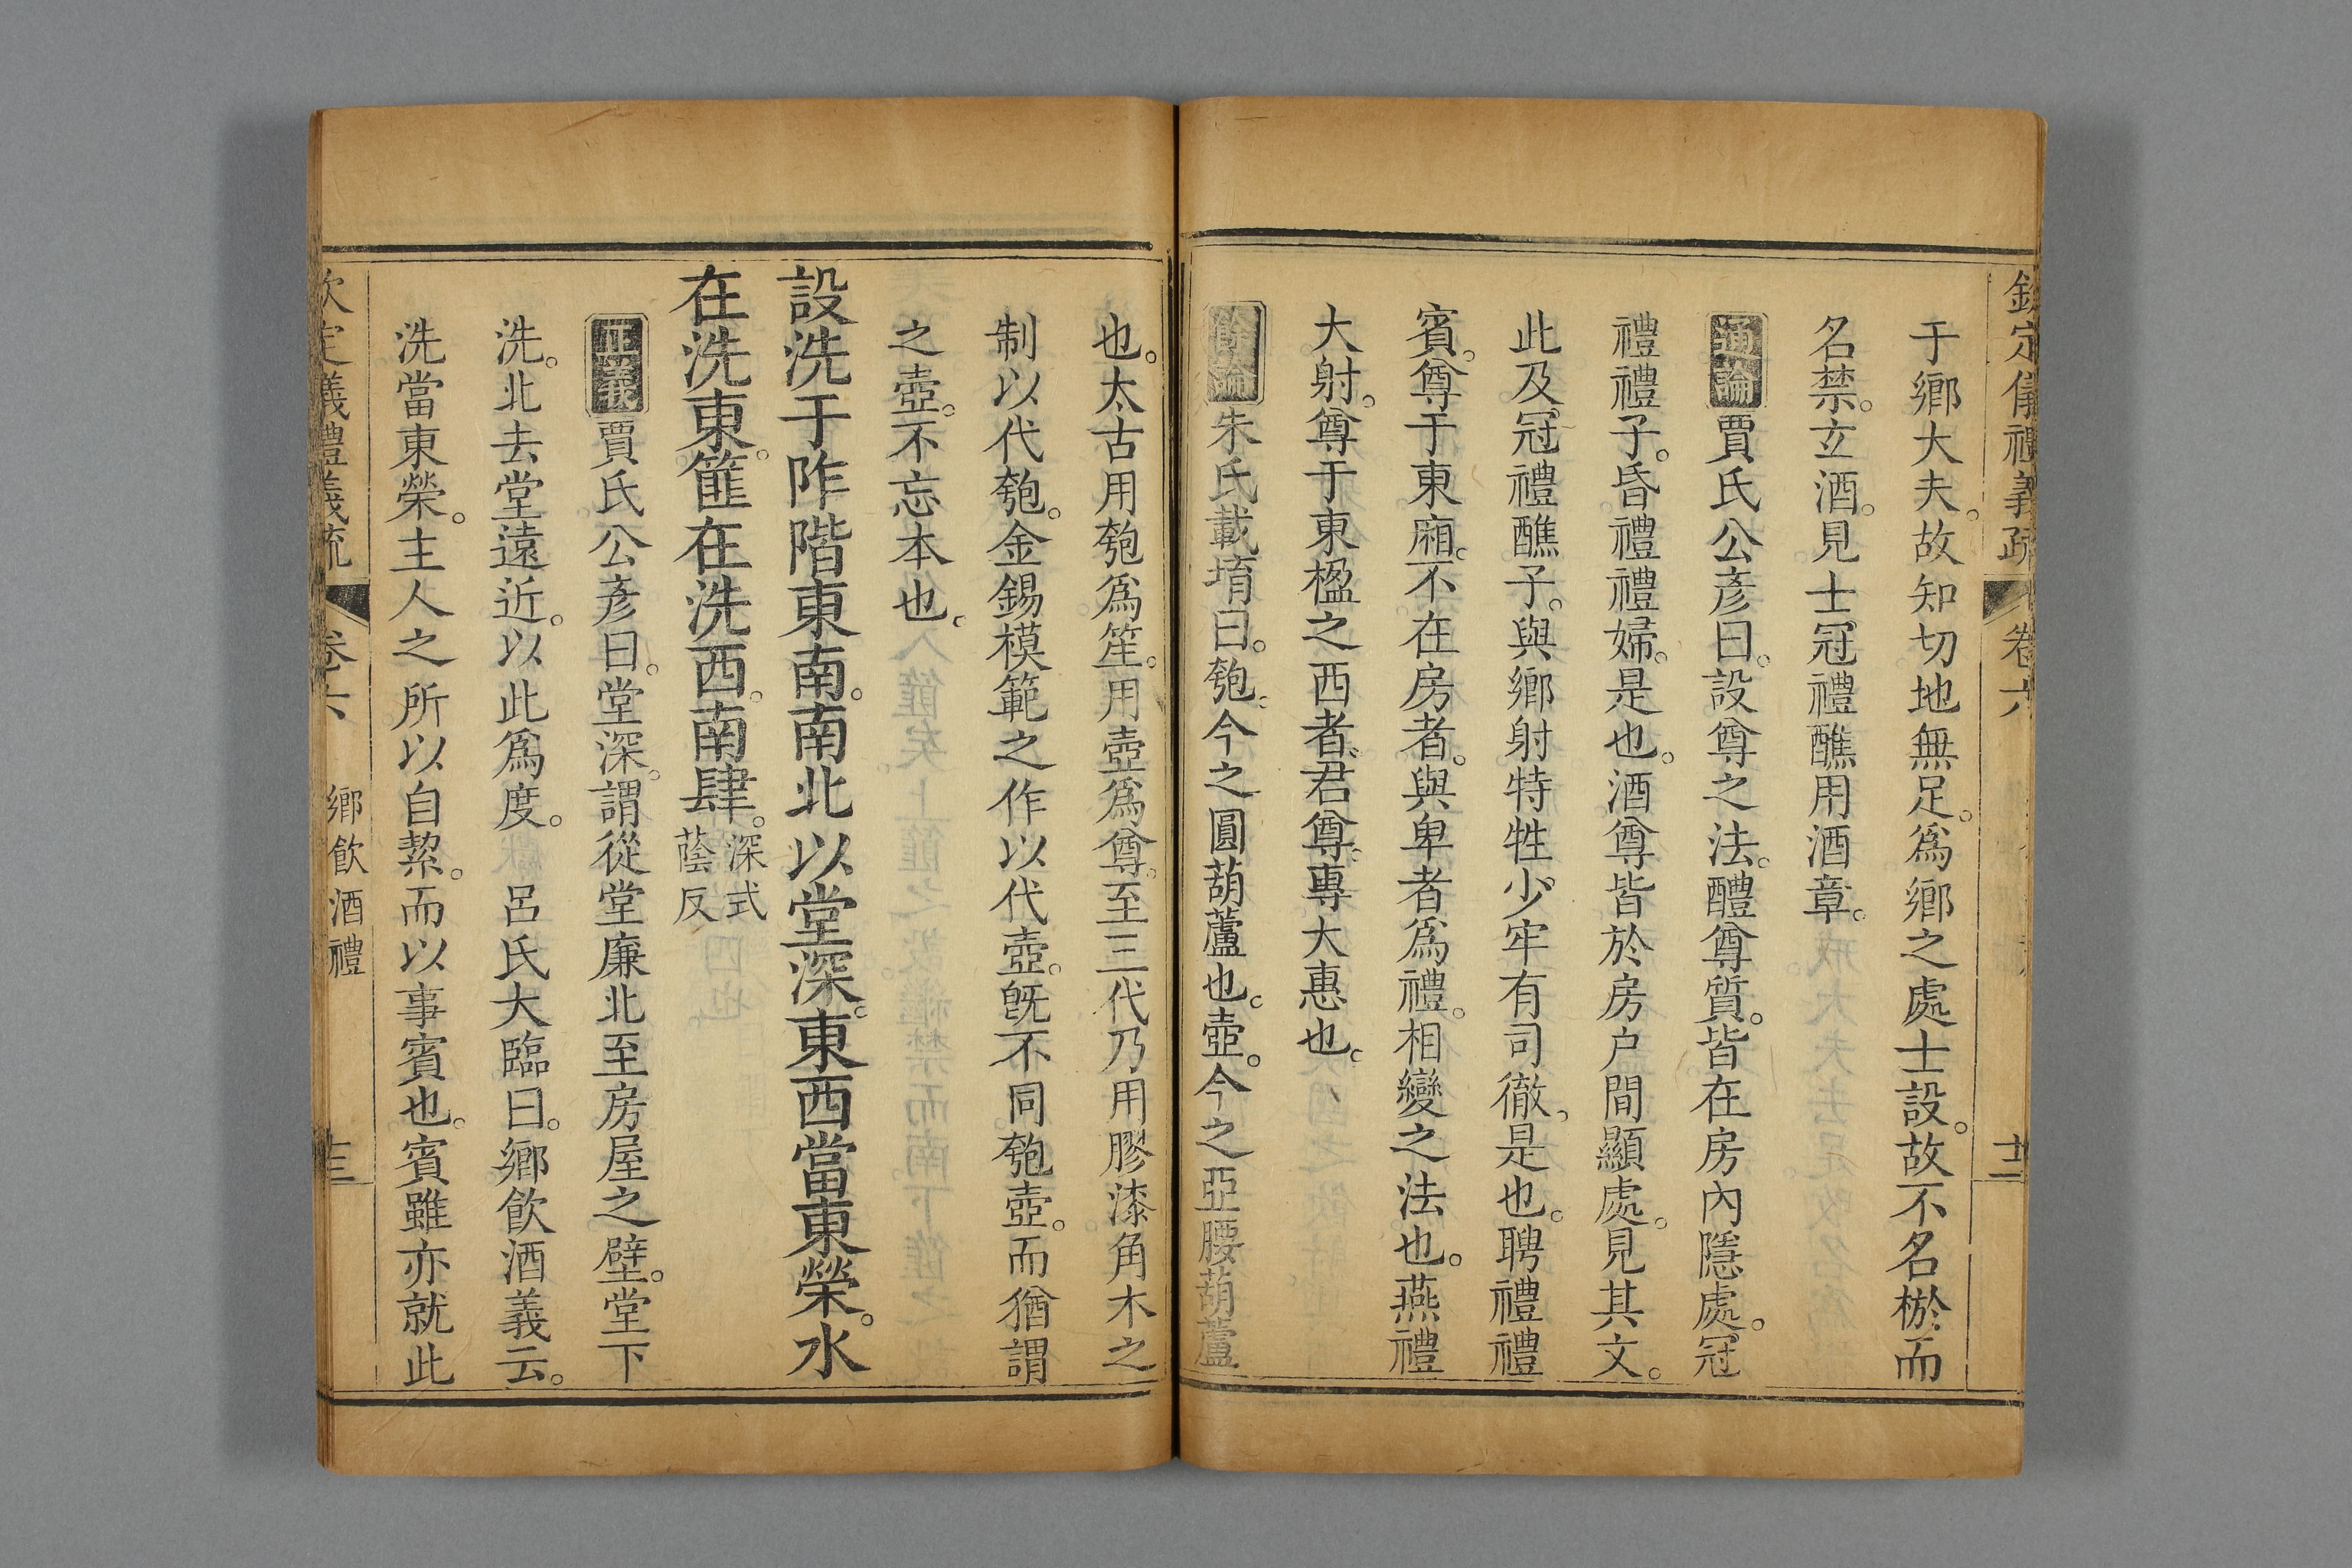 欽定儀禮義疏 卷六 十二
于鄉大夫。故知切地無足。爲鄉之處士設。故不名棜而
名禁。玄酒。見士冠禮醮用酒章。
通論 賈氏公彥曰。設尊之法。醴尊質。皆在房內隱處。冠
禮禮子。昏禮禮婦。是也。酒尊皆於房户間顯處。見其文。
此及冠禮醮子。與鄉射特牲少牢有司徹。是也。聘禮禮
賓。尊于東廂。不在房者。與卑者爲禮。相變之法也。燕禮
大射。尊于東楹之西者。君尊。專大惠也。
餘論 朱氏載堉曰。匏。今之圓葫蘆也。壺。今之亞腰葫蘆
也。太古用匏爲笙。用壺爲尊。至三代乃用膠漆角木之
制以代匏。金錫模範之作以代壺。旣不同匏壺。而猶謂
之壺。不忘本也。
設洗于阼階東南。南北以堂深。東西當東榮。水
在洗東。篚在洗西。南肆。深式蔭反
正義 賈氏公彥曰。堂深。謂從堂廉北至房屋之壁。堂下
洗。北去堂遠近。以此爲度。 呂氏大臨曰。鄉飲酒義云。
洗當東榮。主人之所以自絜。而以事賓也。賓雖亦就此
欽定儀禮義疏 卷六 鄉飲酒禮 十三